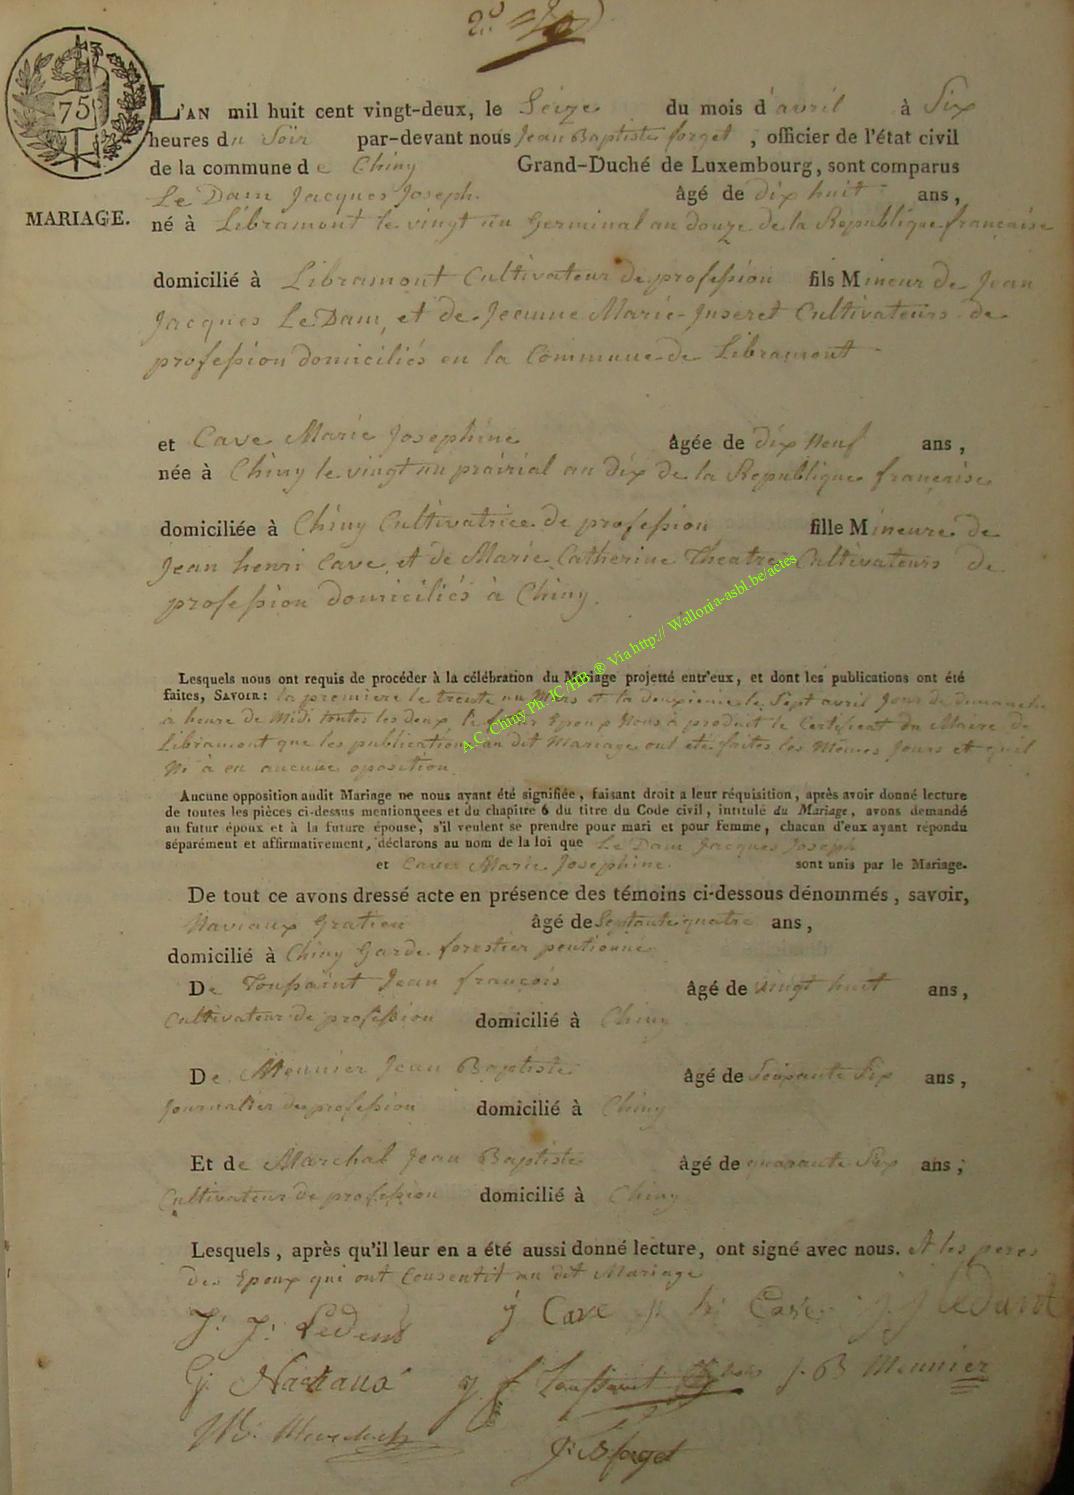 2.º
75
L'AN mil huit cent vingt-deux, le Seize du mois d'avril à Six
heures du Soir par-devant nous Jean Baptiste forget, officier de l'état civil
de la commune de Chiny Grand-Duché de Luxembourg, sont comparus
Le Dam Jacques Joseph. âgé de dix huit ans,
MARIAGE. né à Libramont le vingt un Germinal an douze de la Republique française
domicilié à Libramont Cultivateur de profession fils Mineur de Jean
Jacques Le Dam, et de Jeanne Marie Cultivateurs de
profession domiciliés en la Commune de Libramont
et Cave Marie Josephine âgée de dix Neuf ans,
née à Chiny le vingt un prairial an dix de la Republique française
domiciliée à Chiny Cultivatrice de profession fille Mineure de
Jean henri Cave, et de Marie Catherine Theatre Cultivateurs de
profession domiciliés à Chiny.
Lesquels nous ont requis de procéder à la célébration du Mariage projetté entr'eux, et dont les publications ont été
faites, SAVOIR: la premiere le trente un Mars et la deuxieme le Sept avril Jour de dimanche
a heure de Midi toutes les deux le futur Epoux Nous à produit le Certificat du Maire de
Libramont que les publications au dit Mariage ont été faites les Mêmes Jours et qu'il
Ni à eu aucune oposition
A.C. Chiny Ph. JC /HB. ® Via http:// Wallonia-asbl.be/actes
Aucune opposition audit Mariage ne nous ayant été signifiée, faisant droit a leur réquisition, après avoir donné lecture
de toutes les pièces ci-dessus mentionnées et du chapitre 6 du titre du Code civil, intitulé du Mariage, avons demandé
au futur époux et à la future épouse, s'il veulent se prendre pour mari et pour femme, chacun d'eux ayant répondu
séparément et affirmativement, déclarons au nom de la loi que Le Dam Jacques Joseph
et Cave Marie Josephine. sont unis par le Mariage.
De tout ce avons dressé acte en présence des témoins ci-dessous dénommés, savoir,
Naviaux Gratien âgé de Septante quatre ans,
domicilié à Chiny Garde forestier pentionné
De Toussaint Jean françois âgé de vingt huit ans,
Cultivateur de profession domicilié à Chiny
De Meunier Jean Baptiste âgé de Soixante Six ans,
Journalier de profession domicilié à Chiny
Et de Marchal Jean Baptiste âgé de quarante Six ans;
Cultivateur de profession domicilié à Chiny
Lesquels, après qu'il leur en a été aussi donné lecture, ont signé avec nous. Et les peres
des Epoux qui ont Consentit au dit Mariage
J: J: j Cave j. h. Cave j. j
G. j f. Toussaint j. B Meunier
J: B forget